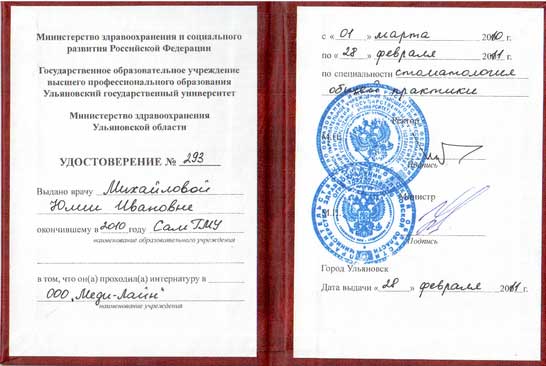 Министерство здравоохранения и социального
развития Российской Федерации
Государственное образовательное учреждение
высшего профессионального образования
Ульяновский государственный университет
Министерство здравоохранения
Ульяновской области
УДОСТОВЕРЕНИЕ № 293
Выдано врачу Михайловой
Юлии Ивановне
окончившему в 2010 году СамГМУ
наименование образовательного учреждения
в том, что он(а) проходил(а) интернатуру в
ООО „Меди-Лайн"
наименование учреждения
с « 01 » марта 2010 г.
по « 28 » февраля 2011 г.
по специальности стоматология
общей практики
Ректор
М.П.
Подпись
Министр
М.П.
Подпись
Город Ульяновск
Дата выдачи « 28 » февраля 2011 г.